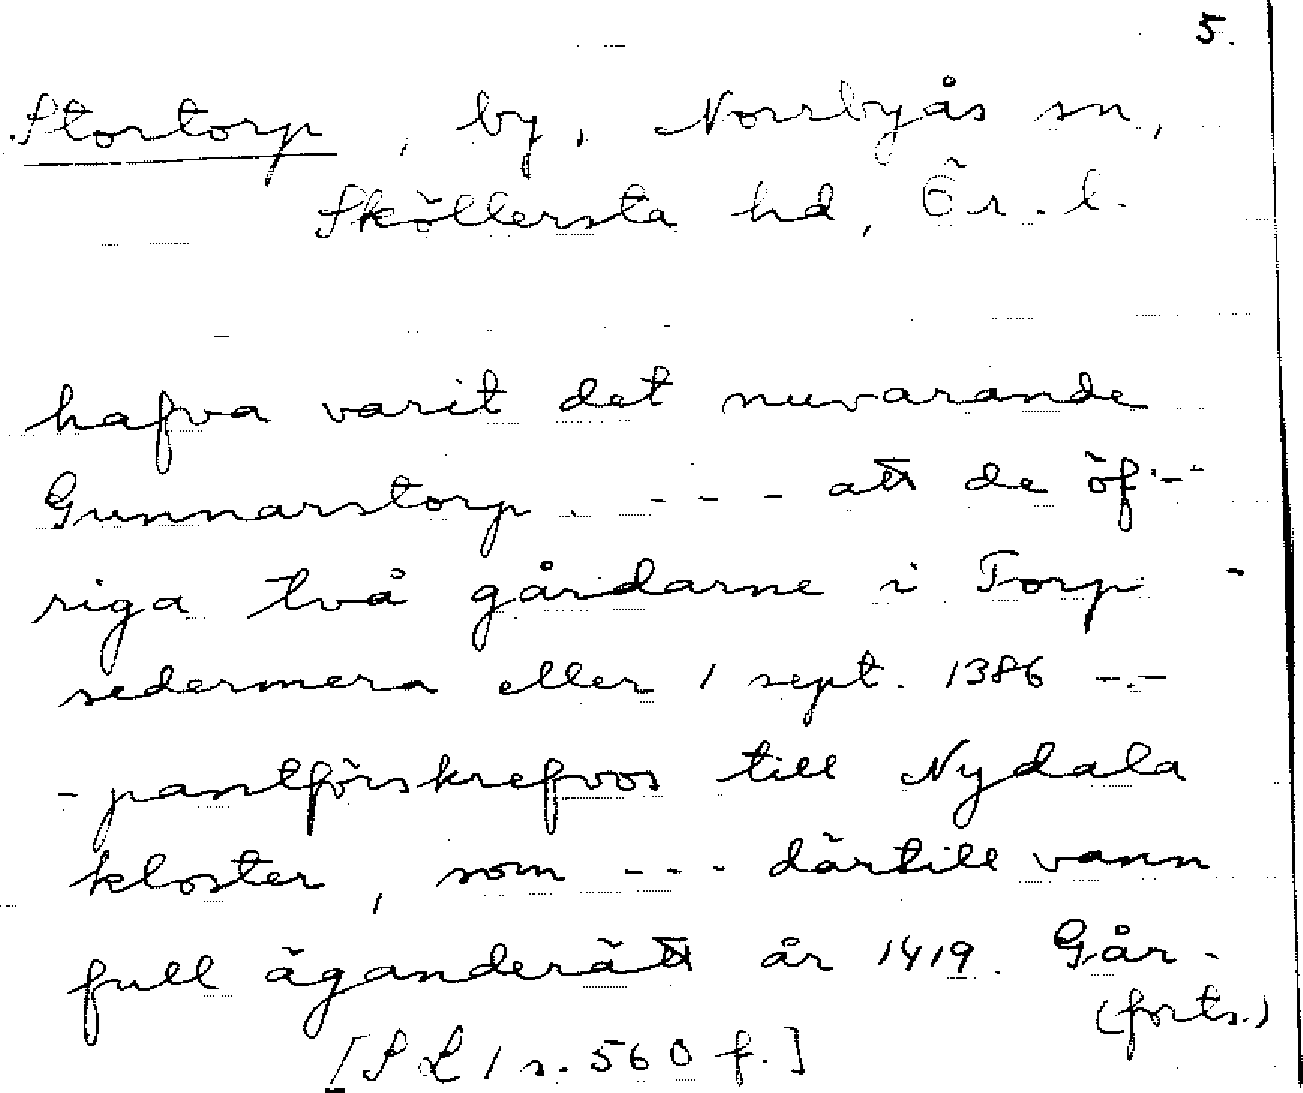 5.
Stortorp, by, Norrbyås sn,
Sköllersta hd, Ör. l.
hafva varit det nuvarande
Gunnarstorp. - - - att de öf-
riga två gårdarne i Torp -
sedermera eller 1 sept. 1386 - -
- pantförskrefvos till Nydala
kloster, som - - - därtill vann
full äganderätt år 1419. Går-
(forts.)
[SL 1 s. 560 f.]